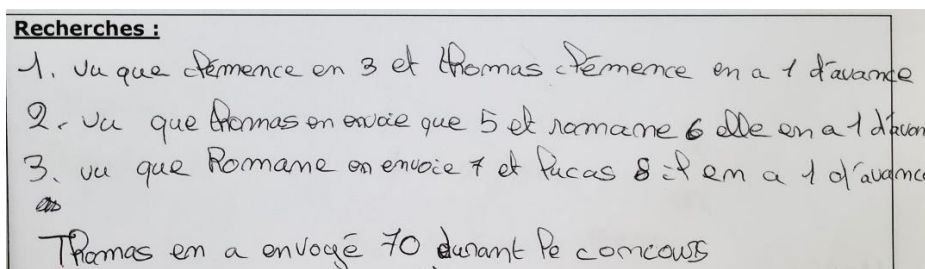 Recherches :
1. vu que Clémence en 3 et thomas Clémence en a 1 d'avance
2. vu que thomas en envoie que 5 et romane 6 elle en a 1 d'avan
3. vu que Romane en envoie 7 et Lucas 8 il en a 1 d'avance
Thomas en a envoyé 70 durant le concours